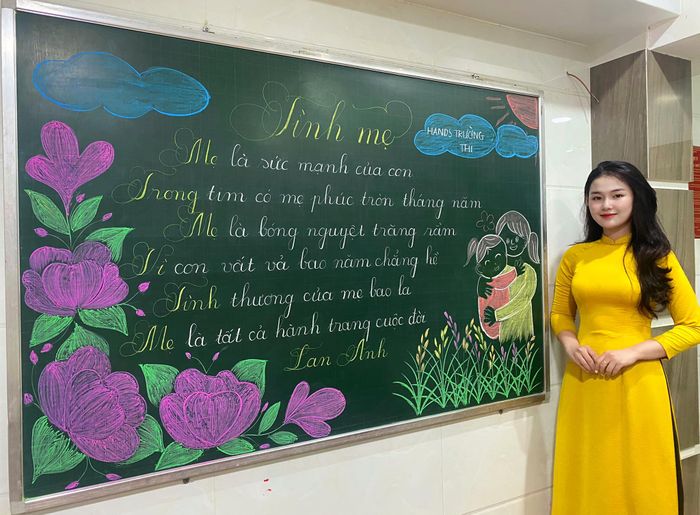 Tình mẹ
HANDS TRƯỜNG
THI
Mẹ là sức mạnh của con
Trong tim có mẹ phúc tròn tháng năm
Mẹ là bóng nguyệt trăng rằm
Vì con vất vả bao năm chẳng hề
Tình thương của mẹ bao la
Mẹ là tất cả hành trang cuộc đời
Lan Anh